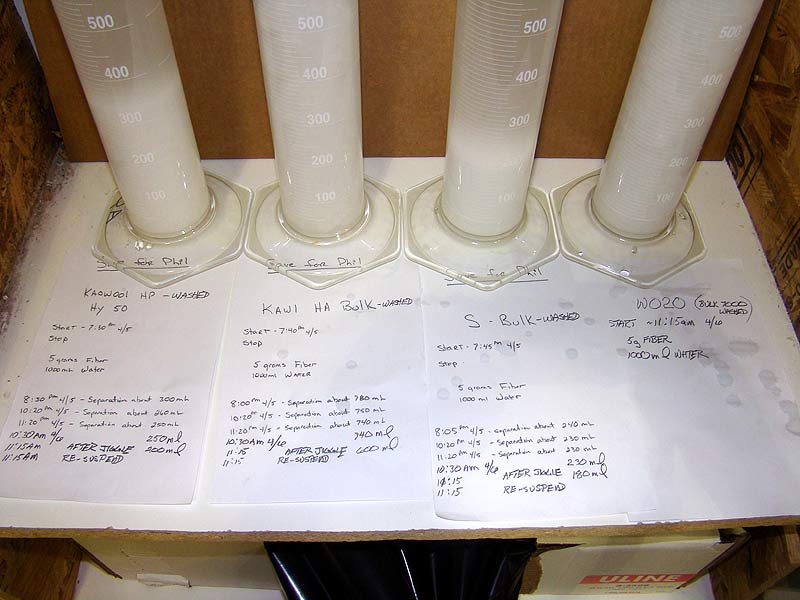 500
400
300
200
100
500
400
300
200
100
500
400
300
200
100
500
400
300
200
100
Save for Phil
KAOWOOL HP - WASHED
Hy 50
Start - 7:30 pm 4/5
Stop
5 grams Fiber
1000 mL Water
8:30 pm 4/5 - Separation about 300 mL
10:20 pm 4/5 - Separation about 260 mL
11:20 pm 4/5 - Separation about 250 mL
10:30 Am 4/6 250 ml
11:15 Am AFTER JIGGLE 200 ml
11:15 AM RE-SUSPEND
Save for Phil
KAWI HA Bulk - WASHED
Start - 7:40 pm 4/5
Stop
5 grams Fiber
1000 ml WATER
8:00 pm 4/5 - Separation about 780 mL
10:20 pm 4/5 - Separation about 750 mL
11:20 pm 4/5 - Separation about 740 mL
10:30 Am 4/6 740 ml
11:15 AFTER JIGGLE 600 ml
11:15 RE-SUSPEND
Save for Phil
S - Bulk - WASHED
Start - 7:45 pm 4/5
Stop
5 grams Fiber
1000 ml Water
8:05 pm 4/5 - Separation about 240 mL
10:20 pm 4/5 - Separation about 230 mL
11:20 pm 4/5 - Separation about 230 mL
10:30 Am 4/6 230 ml
AFTER JIGGLE 180 ml
11:15 RE-SUSPEND
WO20 (BULK 7000 WASHED)
START ~11:15am 4/6
5g FIBER
1000 ml WATER
ULINE